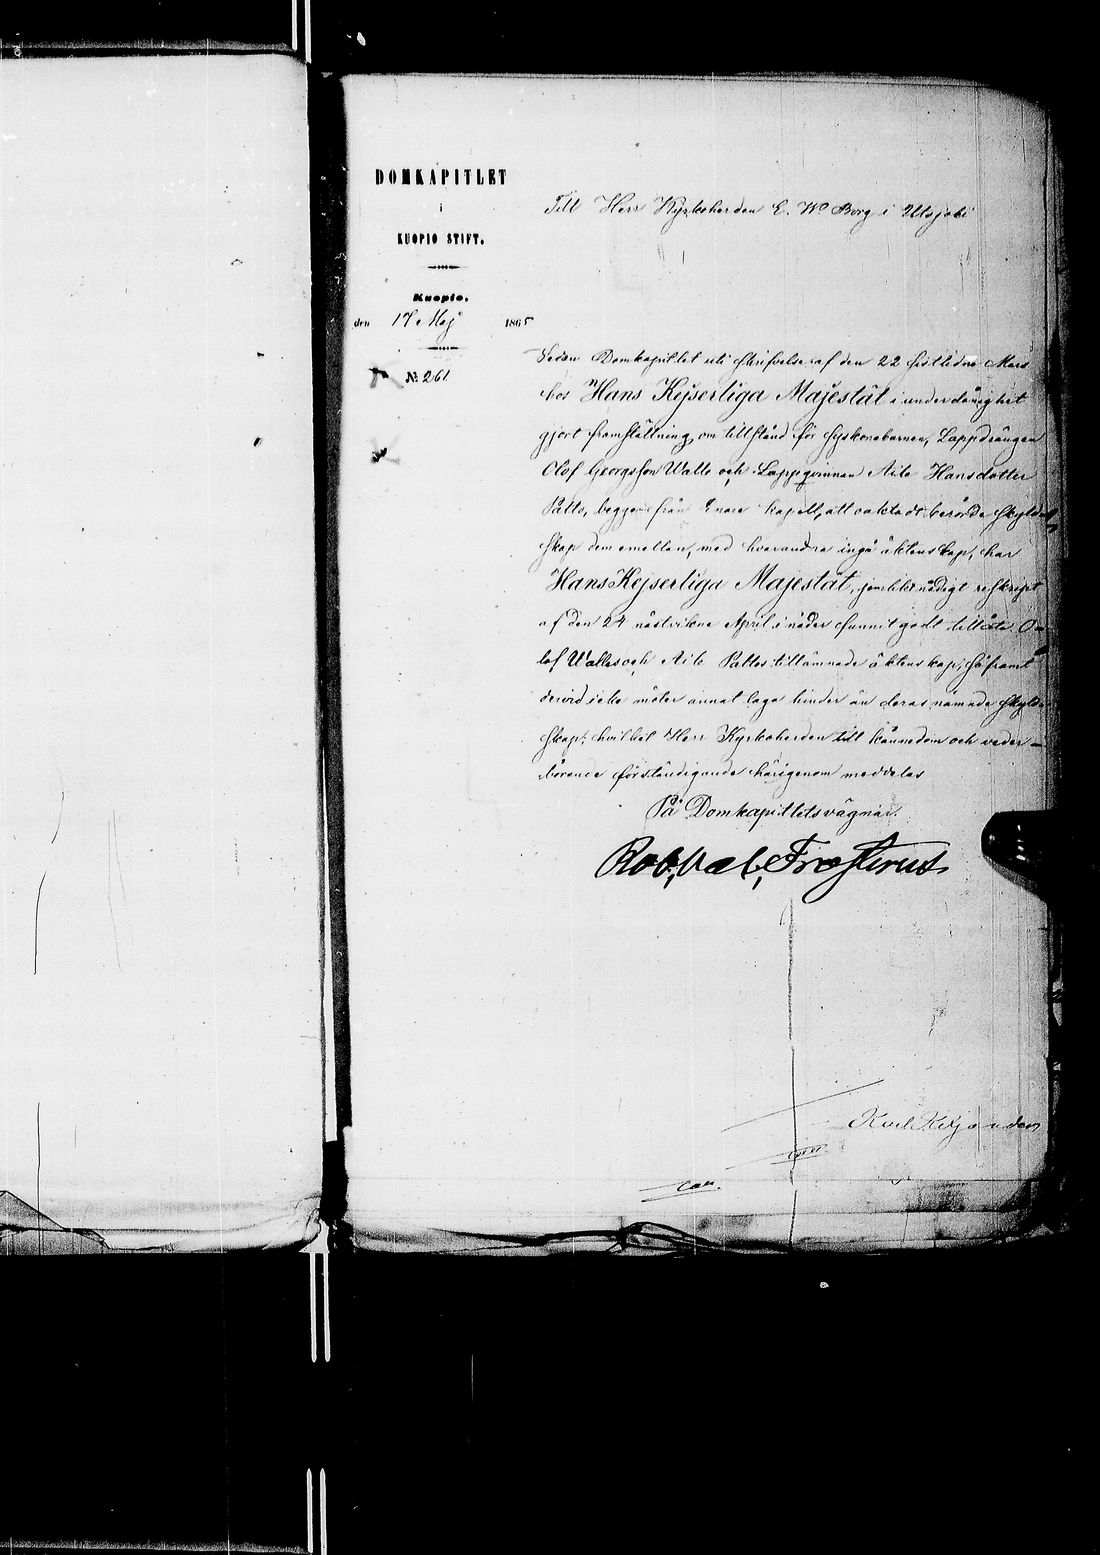 DOMKAPITLET
i
KUOPIO STIFT.
Kuopio.
den 17 Maj 1865
№ 261
Till Herr Kyrkoherden E. W. Borg i Utsjoki
Sedan Domkapitlet uti skrifvelse af den 22 sistlidne Mars
hos Hans Kejserliga Majestät i underdånighet
gjort framställning om tillstånd för syskonebarnen, Lappdrängen
Olof Georgsson Walle och Lappqvinnan Aile Hansdotter
Palto, begge från Enare kapell, att oaktadt berörde skyld-
skap dem emellan, med hvarandra ingå äktenskap, har
Hans Kejserliga Majestät, jemlikt nådigt reskript
af den 24 nästvikne April i nåder funnit godt tillåta O-
lof Walles och Aile Paltos tillämnade äktenskap, såframt
dervid icke möter annat laga hinder än deras nämnde skyld-
skap; hvilket Herr Kyrkoherden till kännedom och veder-
börande förständigande härigenom meddelas
På Domkapitlets vägnar.
Rob. Val. Frosterus
Karl Kiljander